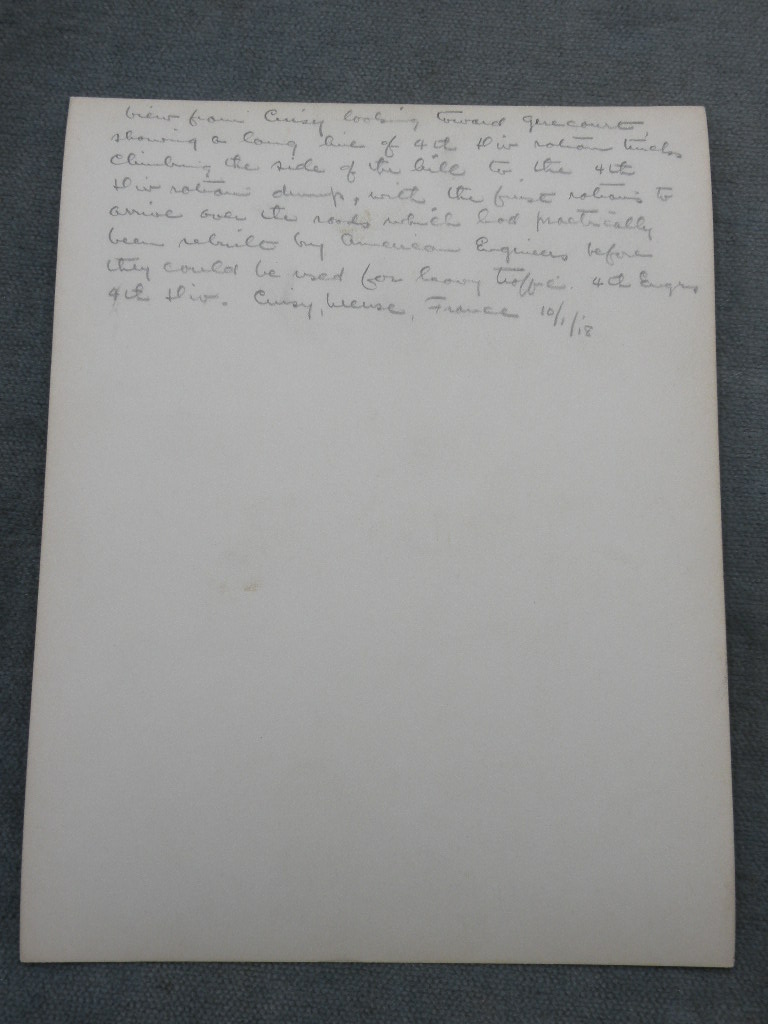 View from Cuisy looking toward Gercourt,
showing a long line of 4th Div ration trucks
climbing the side of the hill to the 4th
Div ration dump, with the first rations to
arrive over the roads which had practically
been rebuilt by American Engineers before
they could be used for heavy traffic. 4th Engrs
4th Div. Cuisy, Meuse, France 10/1/18